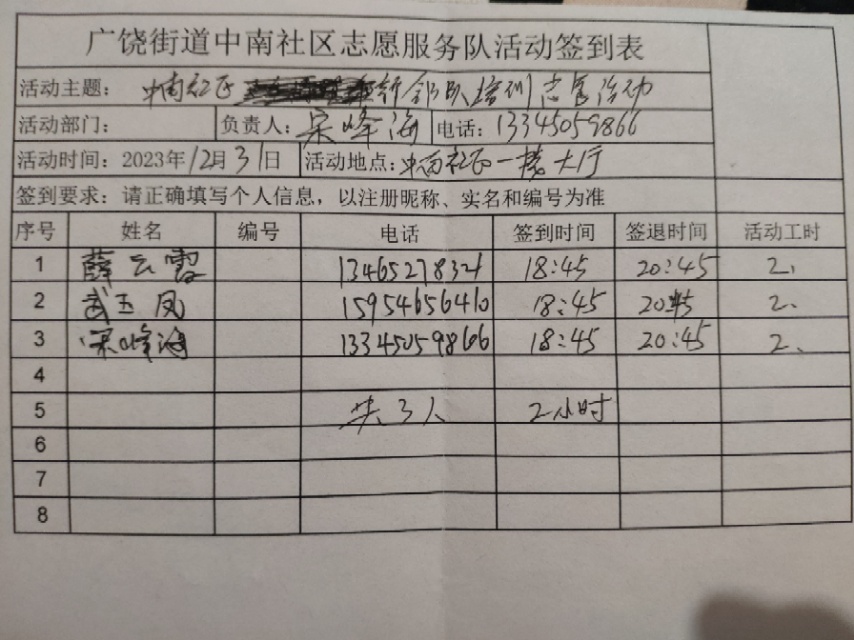 广饶街道中南社区志愿服务队活动签到表
活动主题： 中南社区 郐队培训志愿活动
活动部门： 负责人：宋峰海 电话：13345059866
活动时间：2023年12月31日 活动地点：中南社区一楼大厅
签到要求：请正确填写个人信息，以注册昵称、实名和编号为准
序号 姓名 编号 电话 签到时间 签退时间 活动工时
1 薛云霞 13465278321 18:45 20:45 2、
2 武玉凤 15954656410 18:45 20:45 2、
3 宋峰海 13345059866 18:45 20:45 2、
4
5 共3人 2小时
6
7
8